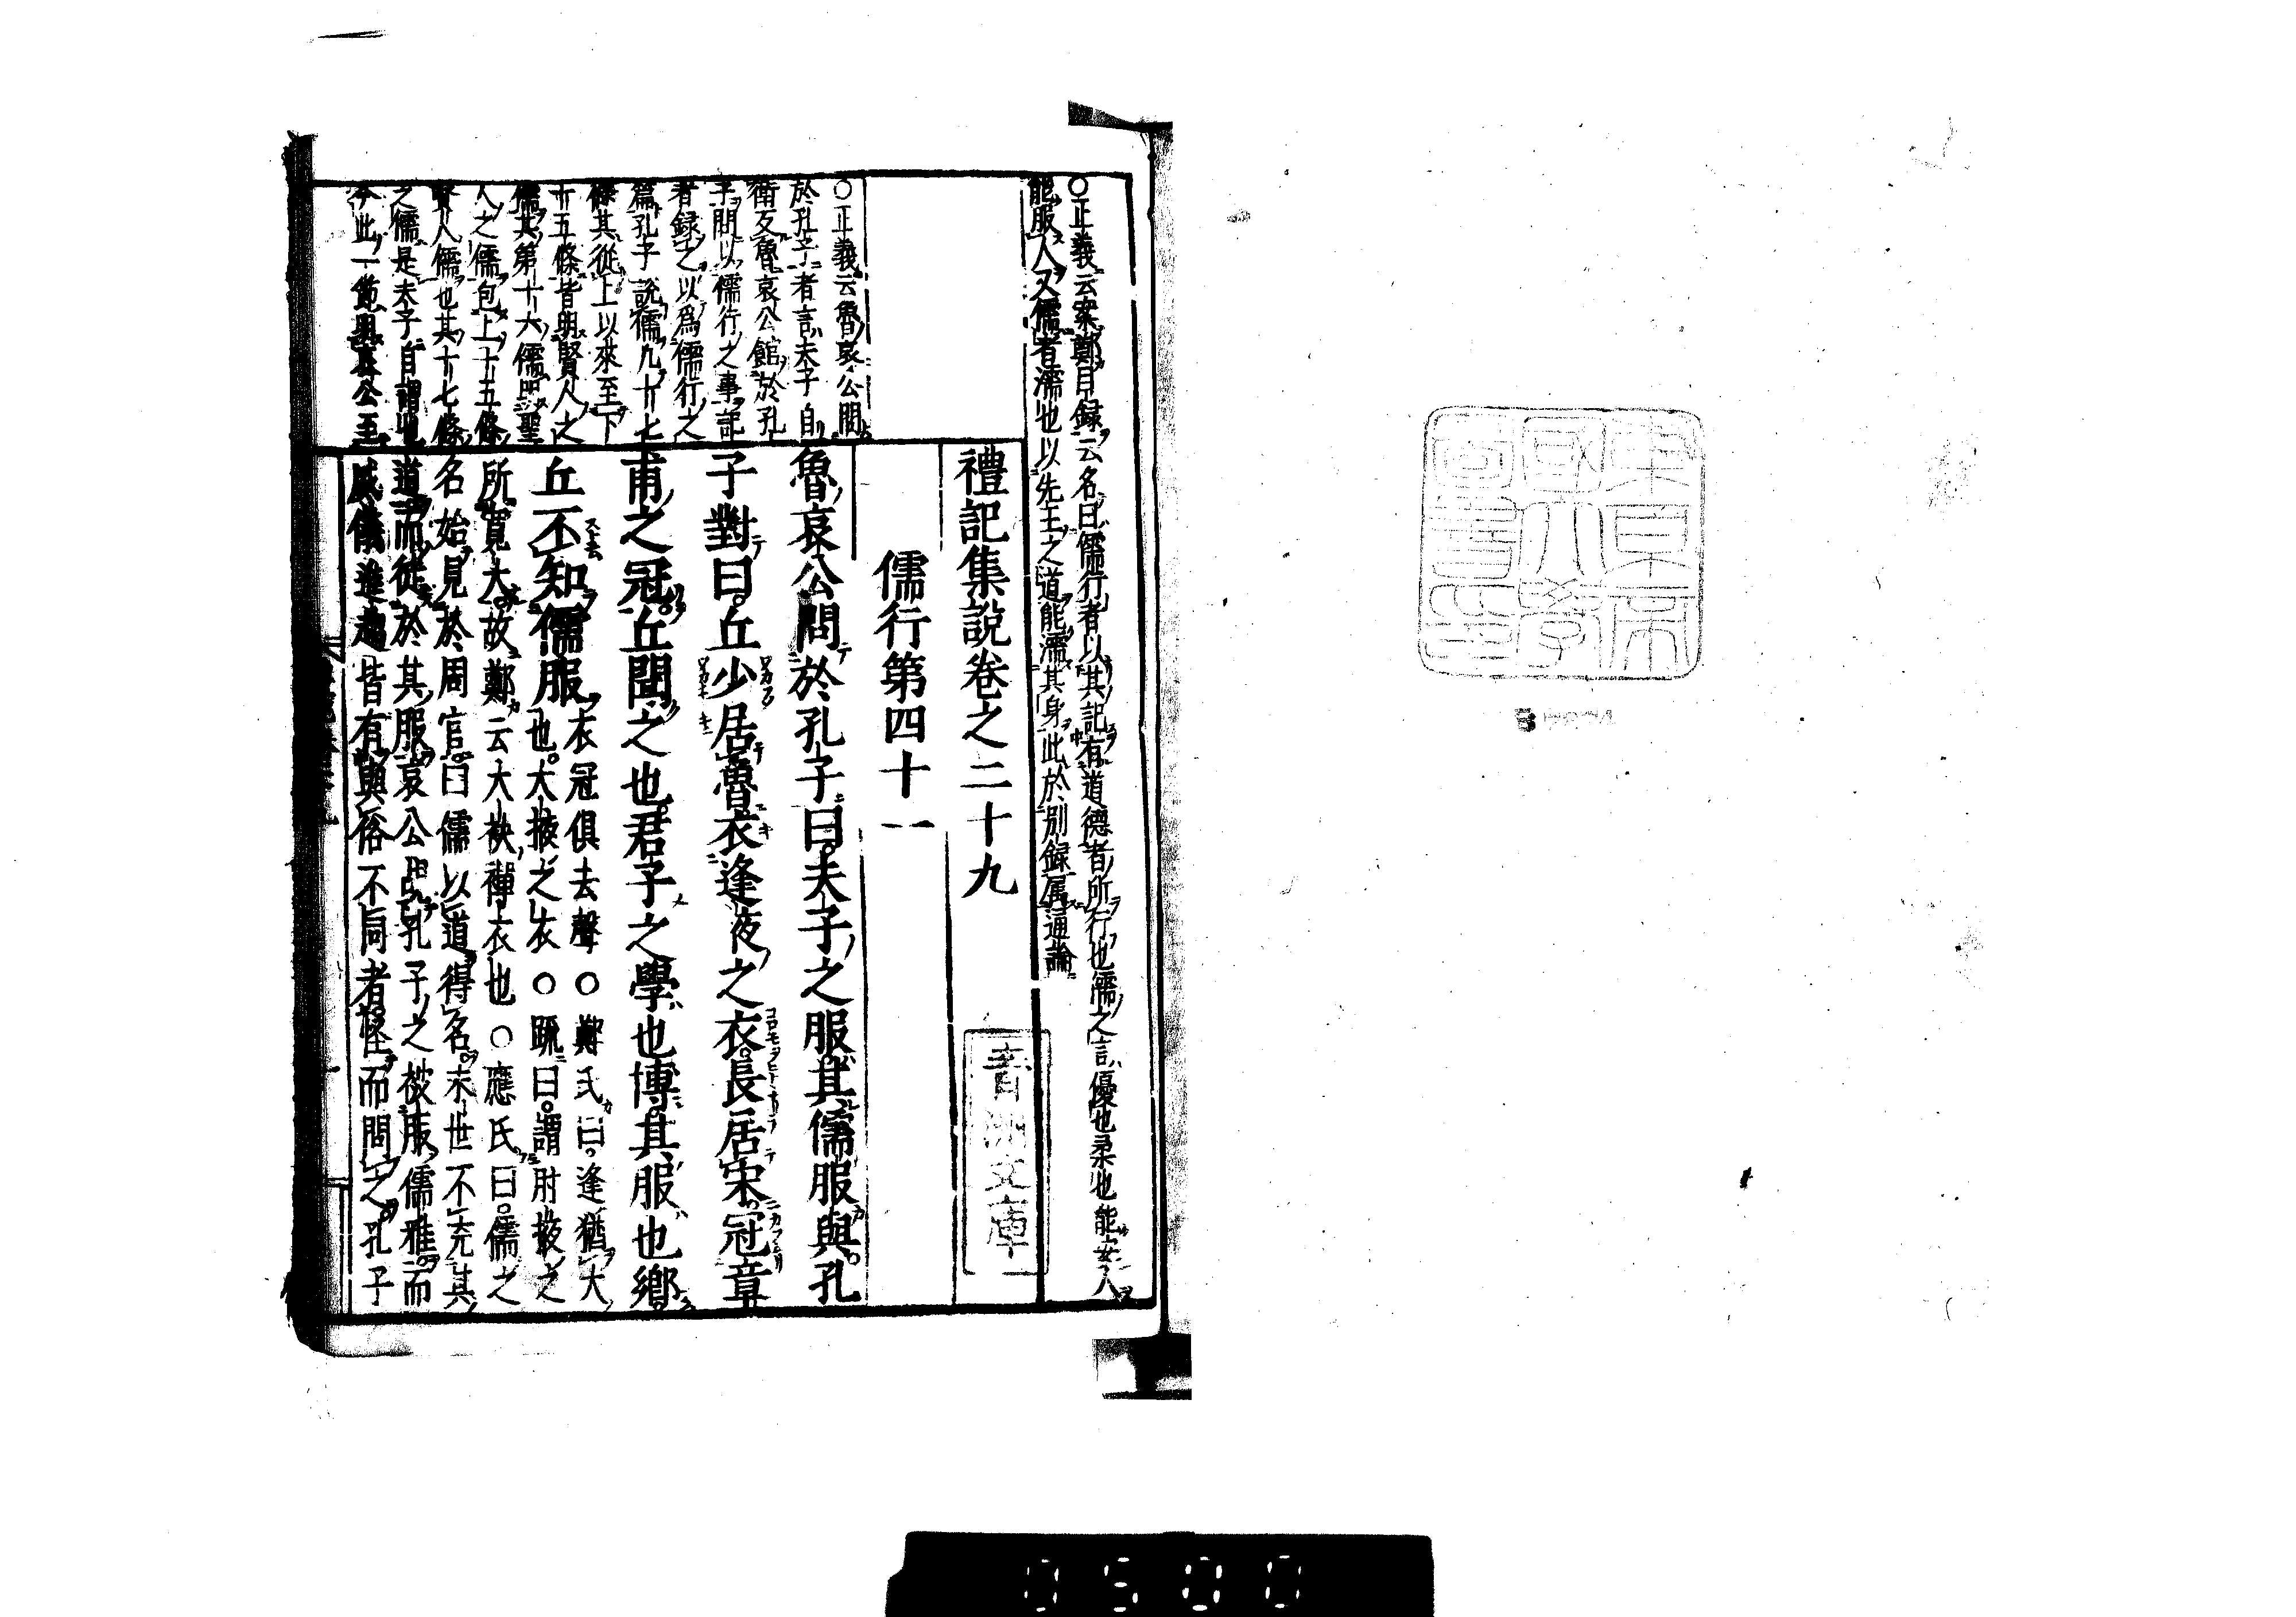 東京帝
國大學
圖書印
○正義云案鄭目録云名曰儒行者以其記有道德者所行也儒之言優也柔也能安人
能服人又儒者濡也以先王之道能濡其身此於別録属通論
禮記集說卷之二十九
青洲文庫
儒行第四十一
○正義云魯哀公問
於孔子者言夫子自
衛反魯哀公館於孔
子問以儒行之事記
者録之以爲儒行之
篇孔子說儒凡十七
條其從上以來至下
十五條皆明賢人之
儒其第十六儒明聖
人之儒包上十五條
賢人儒也其十七條
之儒是夫子自謂也
今此一節與哀公至
魯哀公問於孔子曰夫子之服其儒服與孔
子對曰丘少居魯衣逢掖之衣長居宋冠章
甫之冠丘聞之也君子之學也博其服也鄉
丘不知儒服衣冠俱去聲○鄭氏曰逢猶大
也大掖之衣○疏曰謂肘掖之
所寬大故鄭云大袂禪衣也○應氏曰儒之
名始見於周官曰儒以道得名末世不充其
道而徒於其服哀公覘孔子之被服儒雅而
威儀進趨皆有與俗不同者怪而問之孔子
0500